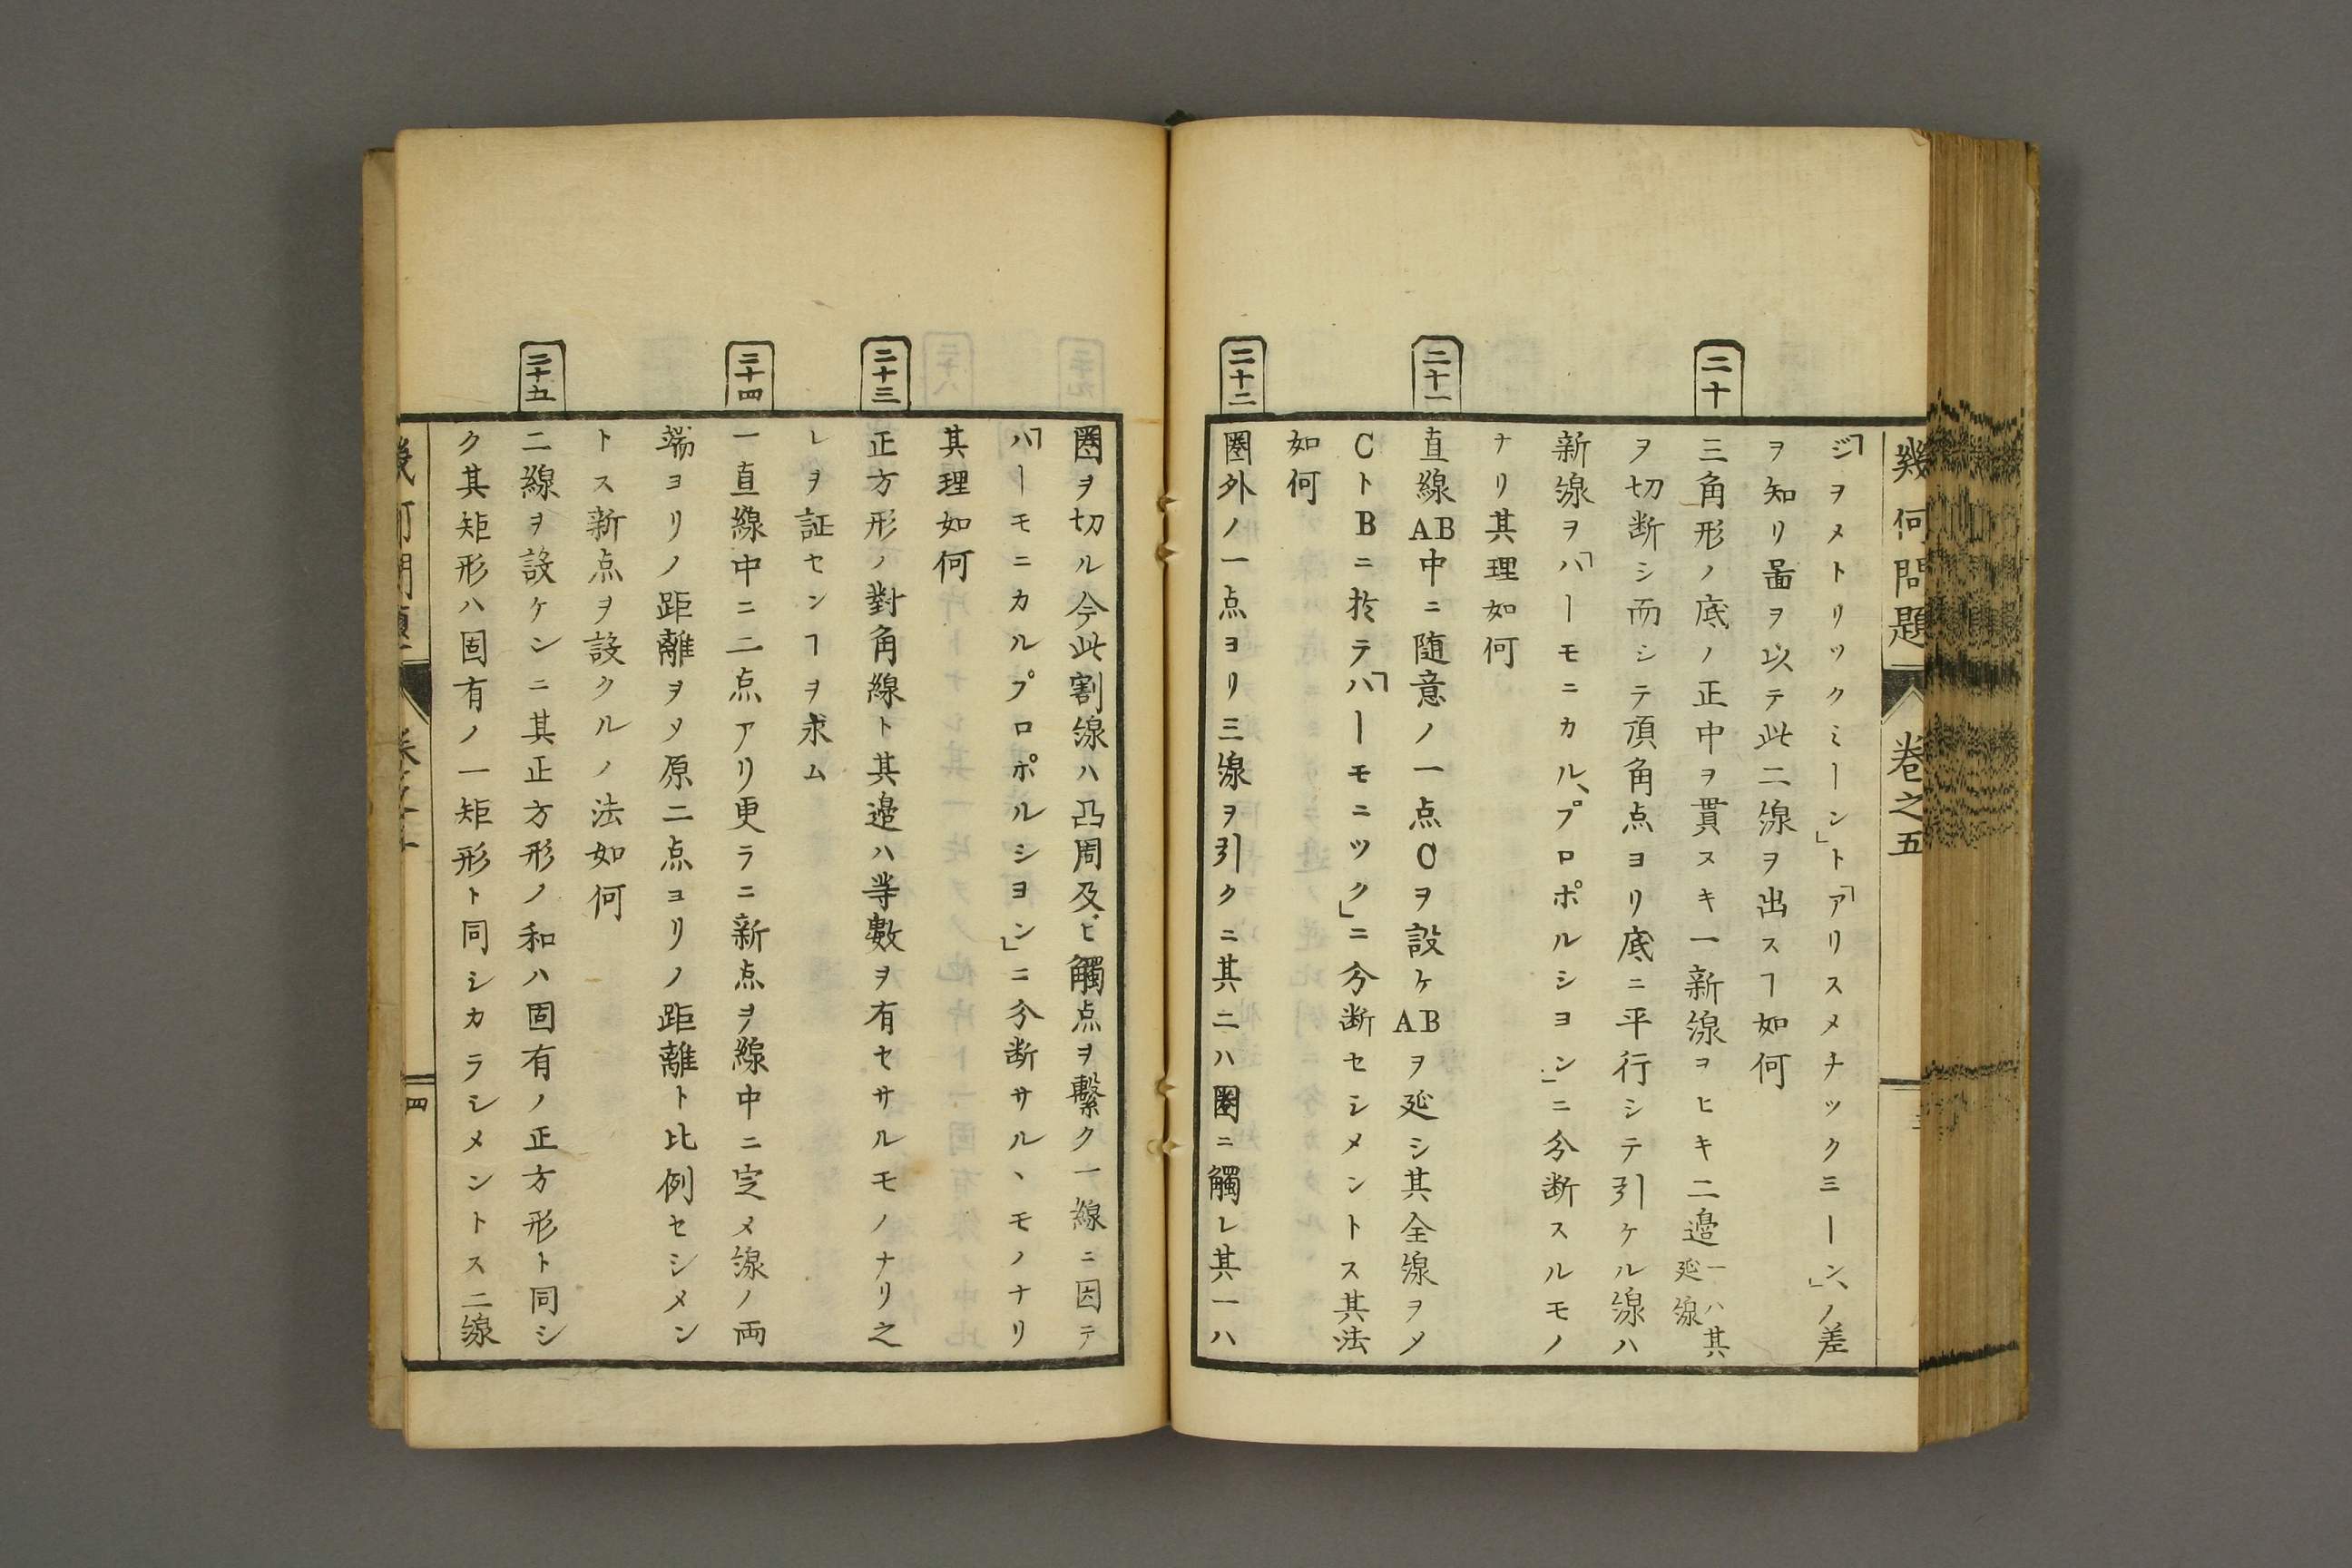 幾何問題 卷之五
「ジヲメトリックミーン」ト「アリスメチックミーン」ノ差
ヲ知リ啚ヲ以テ此二線ヲ出スヿ如何
二十
三角形ノ底ノ正中ヲ貫スキ一新線ヲヒキ二邉一ハ其延線
ヲ切断シ而シテ頂角点ヨリ底ニ平行シテ引ケル線ハ
新線ヲ「ハーモニカル、プロポルシヨン」ニ分断スルモノ
ナリ其理如何
二十一
直線AB中ニ随意ノ一点Cヲ設ケABヲ延シ其全線ヲメ
CトBニ於テ「ハーモニツク」ニ分断セシメントス其法
如何
二十二
圏外ノ一点ヨリ三線ヲ引クニ其二ハ圏ニ觸レ其一ハ
圏ヲ切ル今此割線ハ凸周及ヒ觸点ヲ繋ク一線ニ因テ
「ハーモニカルプロポルシヨン」ニ分断サル、モノナリ
其理如何
二十三
正方形ノ對角線ト其邉ハ等數ヲ有セサルモノナリ之
レヲ証センヿヲ求ム
二十四
一直線中ニ二点アリ更ラニ新点ヲ線中ニ定メ線ノ両
端ヨリノ距離ヲメ原二点ヨリノ距離ト比例セシメン
トス新点ヲ設クルノ法如何
二十五
二線ヲ設ケンニ其正方形ノ和ハ固有ノ正方形ト同シ
ク其矩形ハ固有ノ一矩形ト同シカラシメントス二線
四